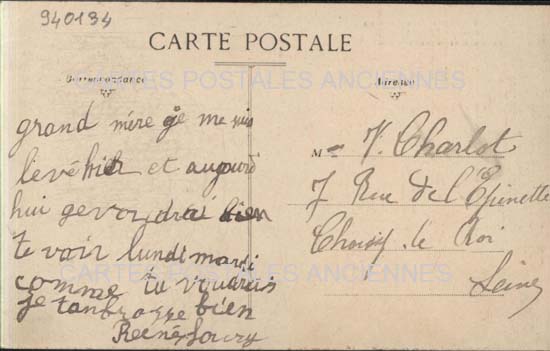 940134
CARTE POSTALE
Correspondance
Adresse
CARTES POSTALES ANCIENNES
grand mère je me suis
levé hier et aujourd
hui ge voudrai bien
te voir lundi mardi
comme tu voudrais
je tanbrasse bien
René
Mme V. Charlot
7 Rue de l'Epinette
Choisy le Roi
Seine
CARTES POSTALES ANCIENNES